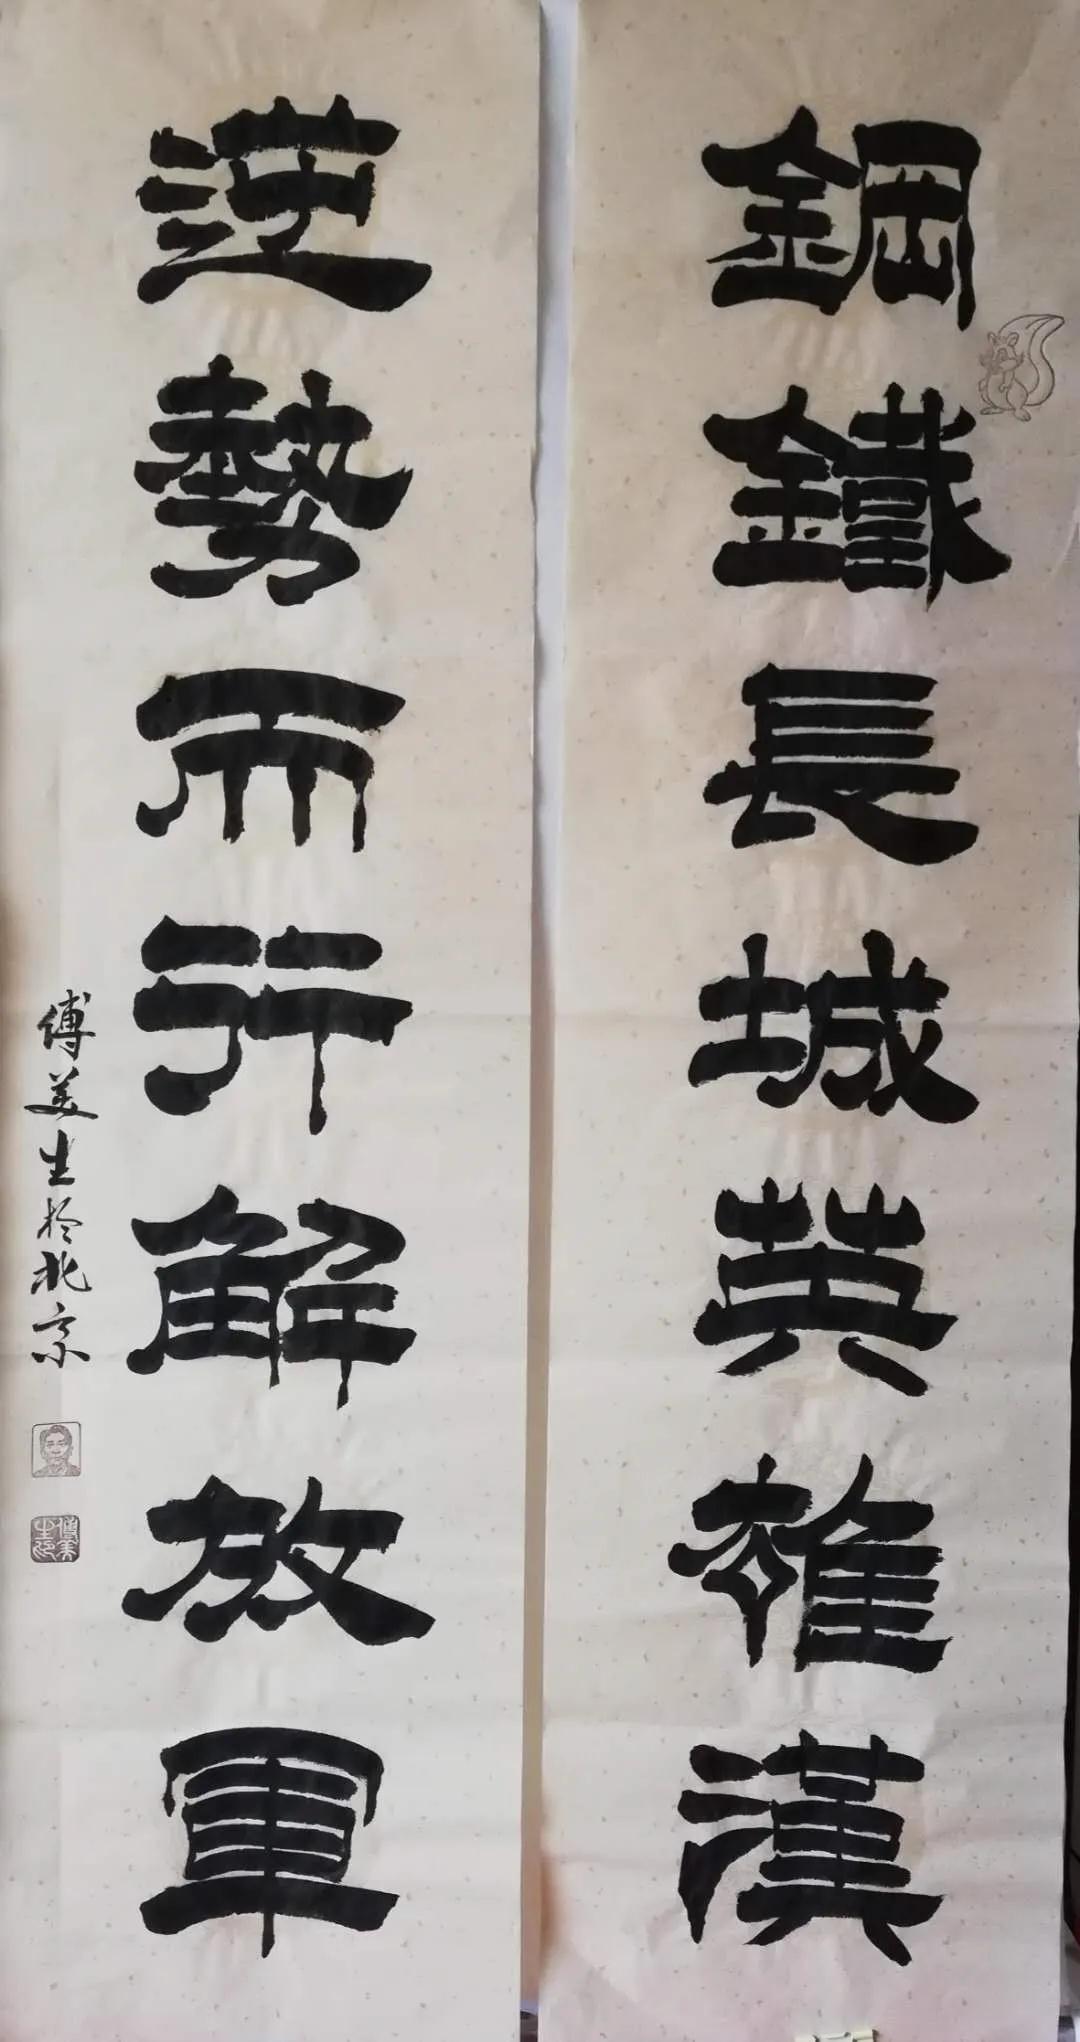 鋼鐵長城英雄漢
逆勢而行解放軍
傅美生於北京
傅美生印